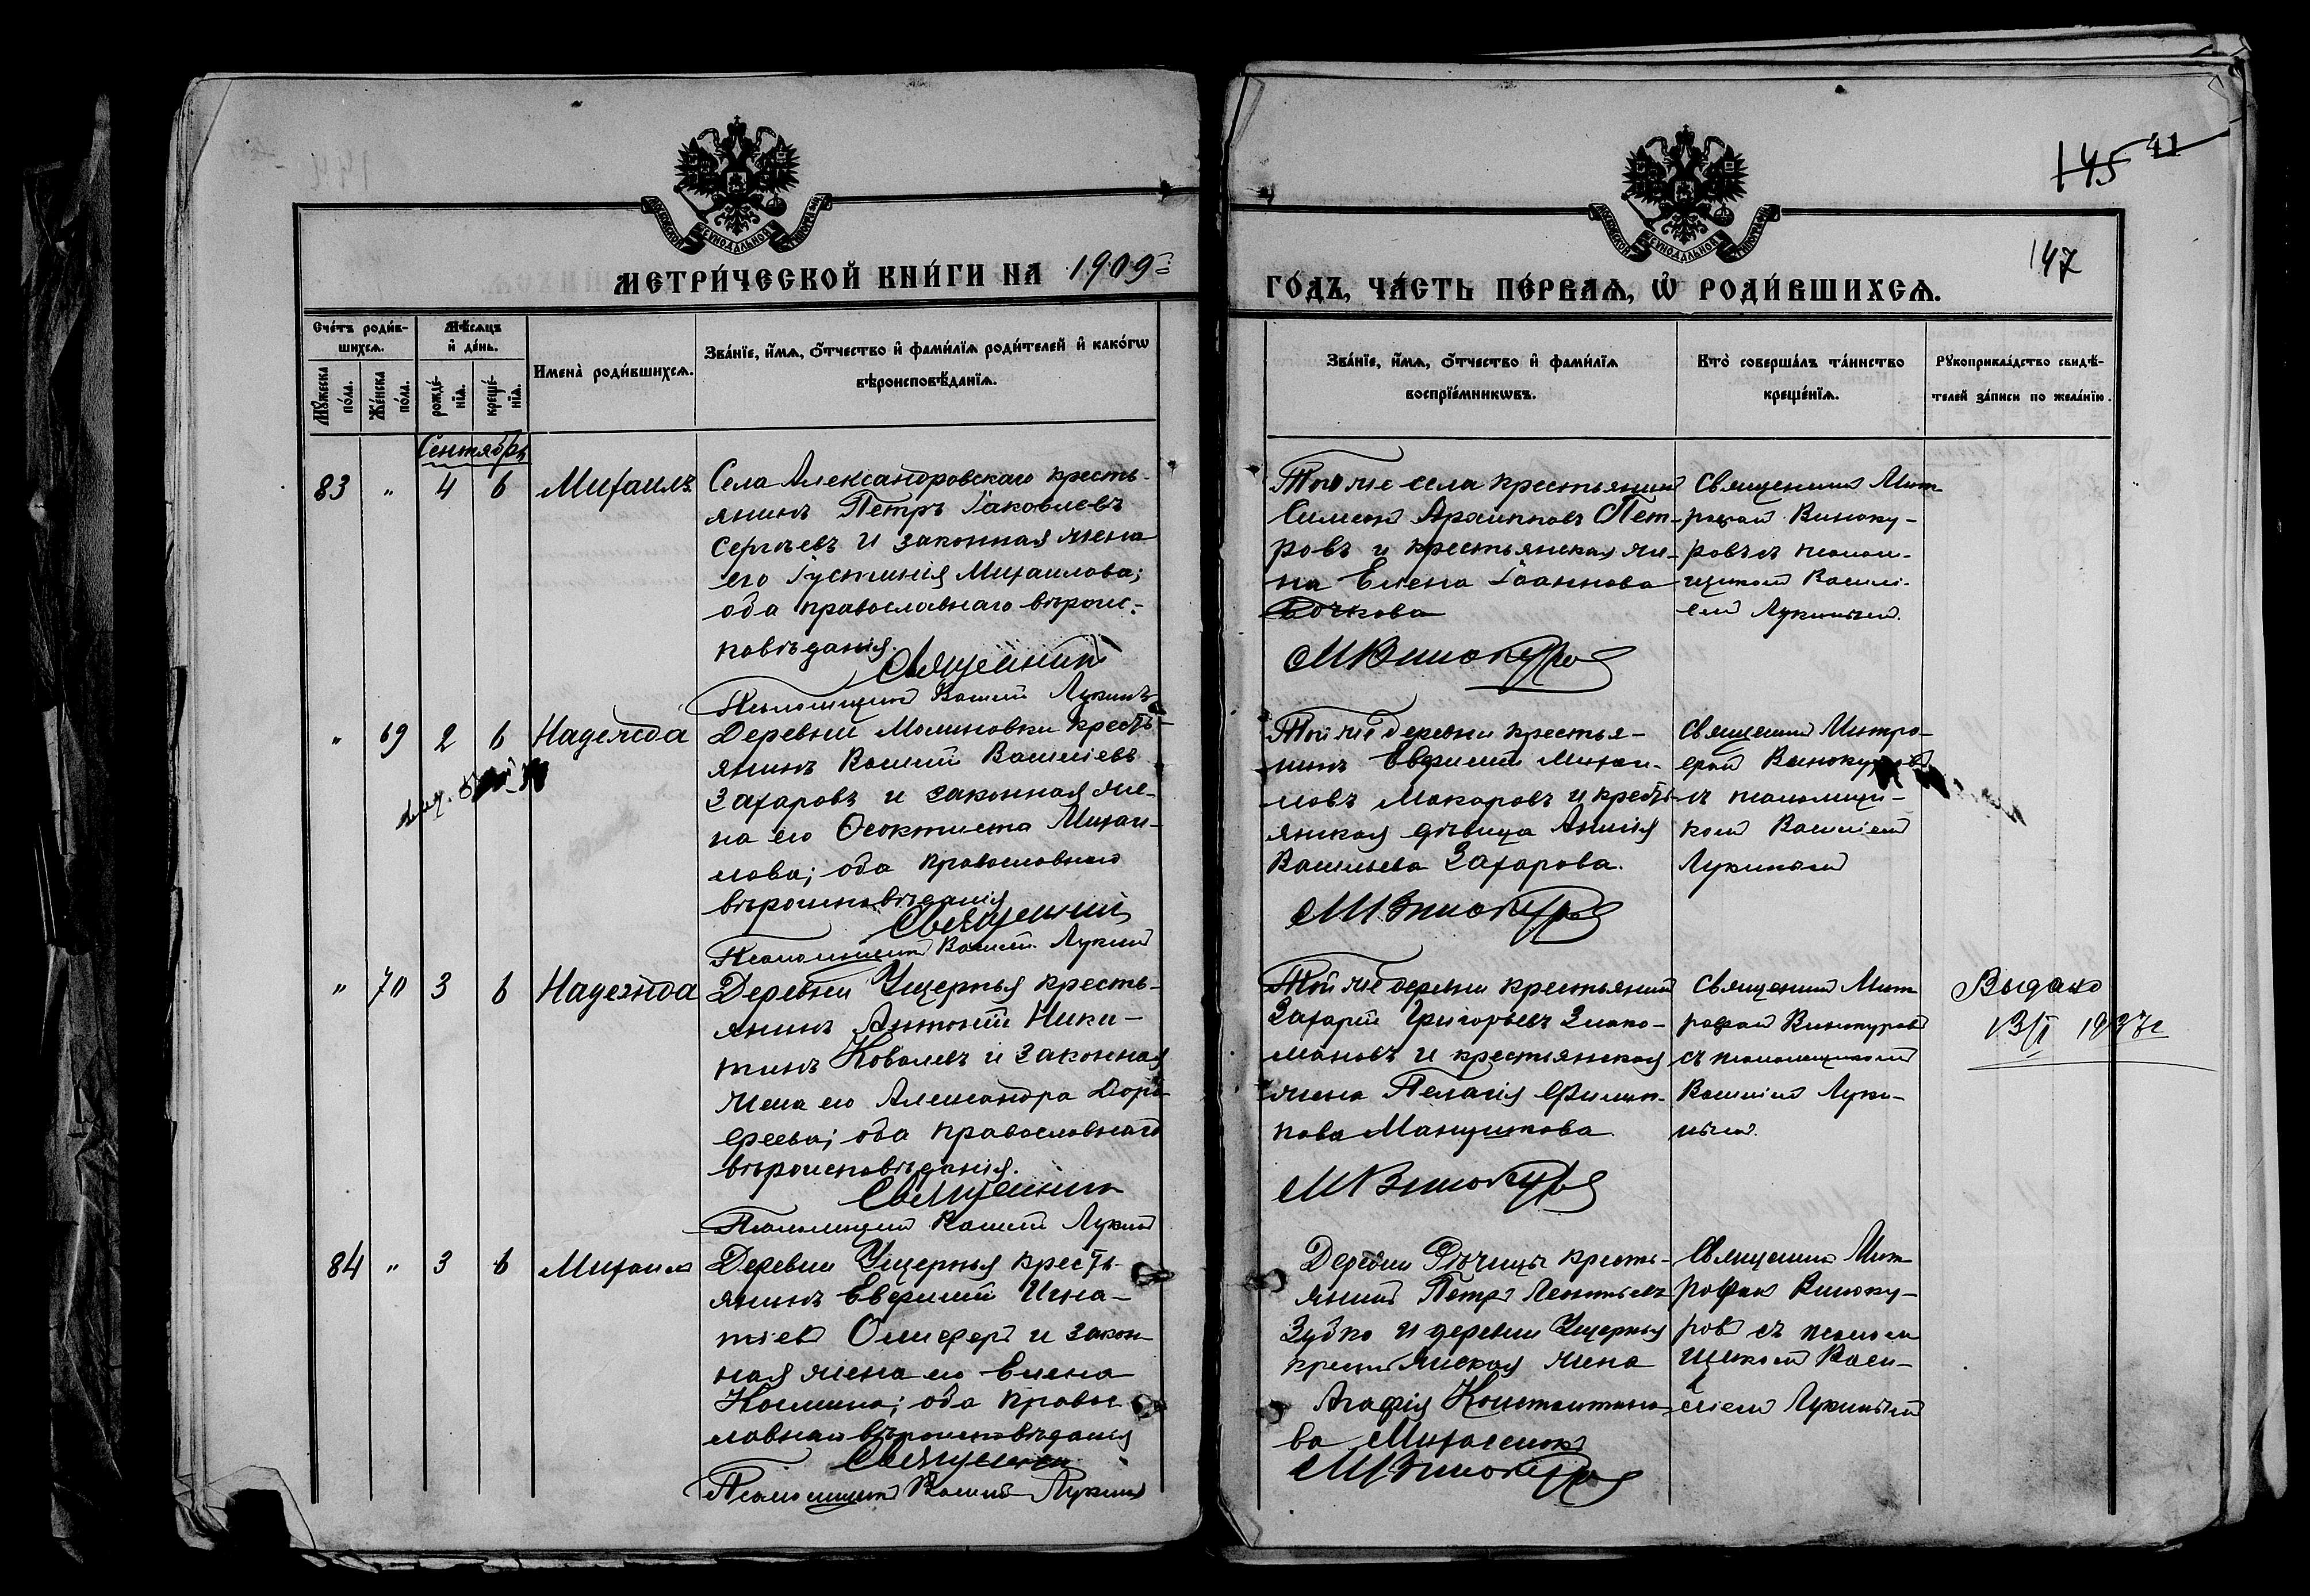 145 41
147
МОСКОВСКОЙ СѴНОДАЛЬНОЙ ТИПОГРАФІИ
МОСКОВСКОЙ СѴНОДАЛЬНОЙ ТИПОГРАФІИ
МЕТРИ́ЧЕСКОЙ КНИ́ГИ НА 1909
ГО́ДЪ, ЧА́СТЬ ПЕ́РВАѦ, Ѡ҆ РОДИ́ВШИХСѦ.
Сче́тъ роди́в-
шихсѧ.
Мꙋ́жеска по́ла.
Же́нска по́ла.
Мѣ́сѧцъ
и҆ де́нь.
рожде́-
нїѧ.
креще́-
нїѧ.
И҆мена̀ роди́вшихсѧ.
Зва́нїе, и҆́мѧ, ѻ҆́тчество и҆ фами́лїѧ роди́телей и҆ како́гѡ
вѣроисповѣ́данїѧ.
Зва́нїе, и҆́мѧ, ѻ҆́тчество и҆ фами́лїѧ
воспрїе́мникѡвъ.
Кто̀ соверша́лъ та́инство
креще́нїѧ.
Рꙋкоприкла́дство свидѣ́-
телей за́писи по жела́нїю.
Сентябрь
83 " 4 6 Михаилъ
Села Александровскаго кресть-
янинъ Петръ Іаковлевъ
Сергѣевъ и законная жена
его Іустинія Михаилова;
оба православнаго вѣроис-
повѣданія.
Священникъ
Псаломщикъ Василій Лукинъ
Того же села крестьянинъ
Симеонъ Архиповъ Пет-
ровъ и крестьянская же-
на Елена Іоаннова
Бочкова
МВинокуровъ
Священникъ Мит-
рофанъ Виноку-
ровъ съ псалом-
щикомъ Васи-
емъ Лукинымъ.
" 69 2 6 Надежда
Деревни Малиновки кресть-
янинъ Василій Васильевъ
Захаровъ и законная же-
на его Ѳеоктиста Михаи-
лова; оба православнаго
вѣроисповѣданія
Священникъ
Псаломщикъ Василій Лукинъ
Той же деревни крестья-
нинъ Евфимій Михаи-
ловъ Макаровъ и кресть-
янская дѣвица
Васильева Захарова.
МВинокуровъ
Священникъ Митро-
фанъ Винокуровъ
съ псаломщи-
комъ Василіемъ
Лукинымъ
" 70 3 6 Надежда
Деревни Ущерпья кресть-
янинъ Антоній Ники-
тинъ Ковалевъ и законная
жена его Александра Доро-
феева; оба православнаго
вѣроисповѣданія.
Священникъ
Псаломщикъ Василій Лукинъ
Той же деревни крестьянинъ
Захарій Григорьевъ
и крестьянская
жена Пелагія Филип-
пова
МВинокуровъ
Священникъ Мит-
рофанъ Винокуровъ
съ псаломщикомъ
Василіемъ Луки-
нымъ.
Выдано
13/I 1937г
84 " 3 6 Михаилъ
Деревни Ущерпья кресть-
янинъ Евфимій Игна-
тіевъ и закон-
ная жена его Елена
Косьмина; оба правос-
лавнаго вѣроисповѣданія
Священникъ
Псаломщикъ Василій Лукинъ
Деревни Рѣчицы кресть-
янинъ Петръ Леонтьевъ
Зубко и деревни Ущерпья
крестьянская жена
Агафія Константино-
ва
МВинокуровъ
Священникъ Мит-
рофанъ Виноку-
ровъ съ псалом-
щикомъ Васи-
ліемъ Лукинымъ